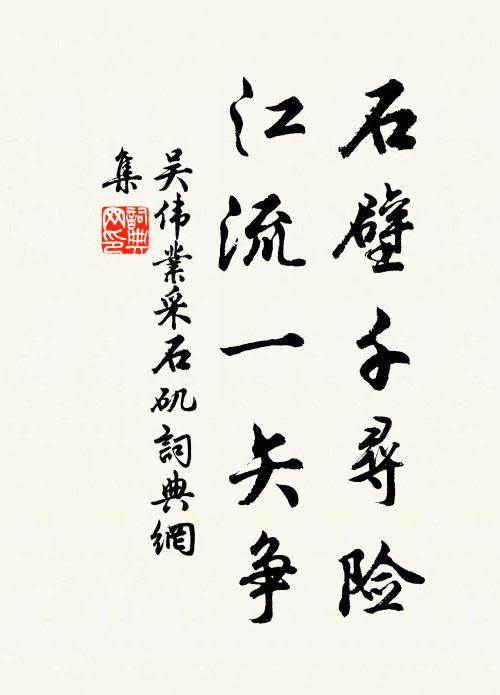 石壁千尋险
江流一矢争
吴伟業采石矶詞典網
集
詞典
网印